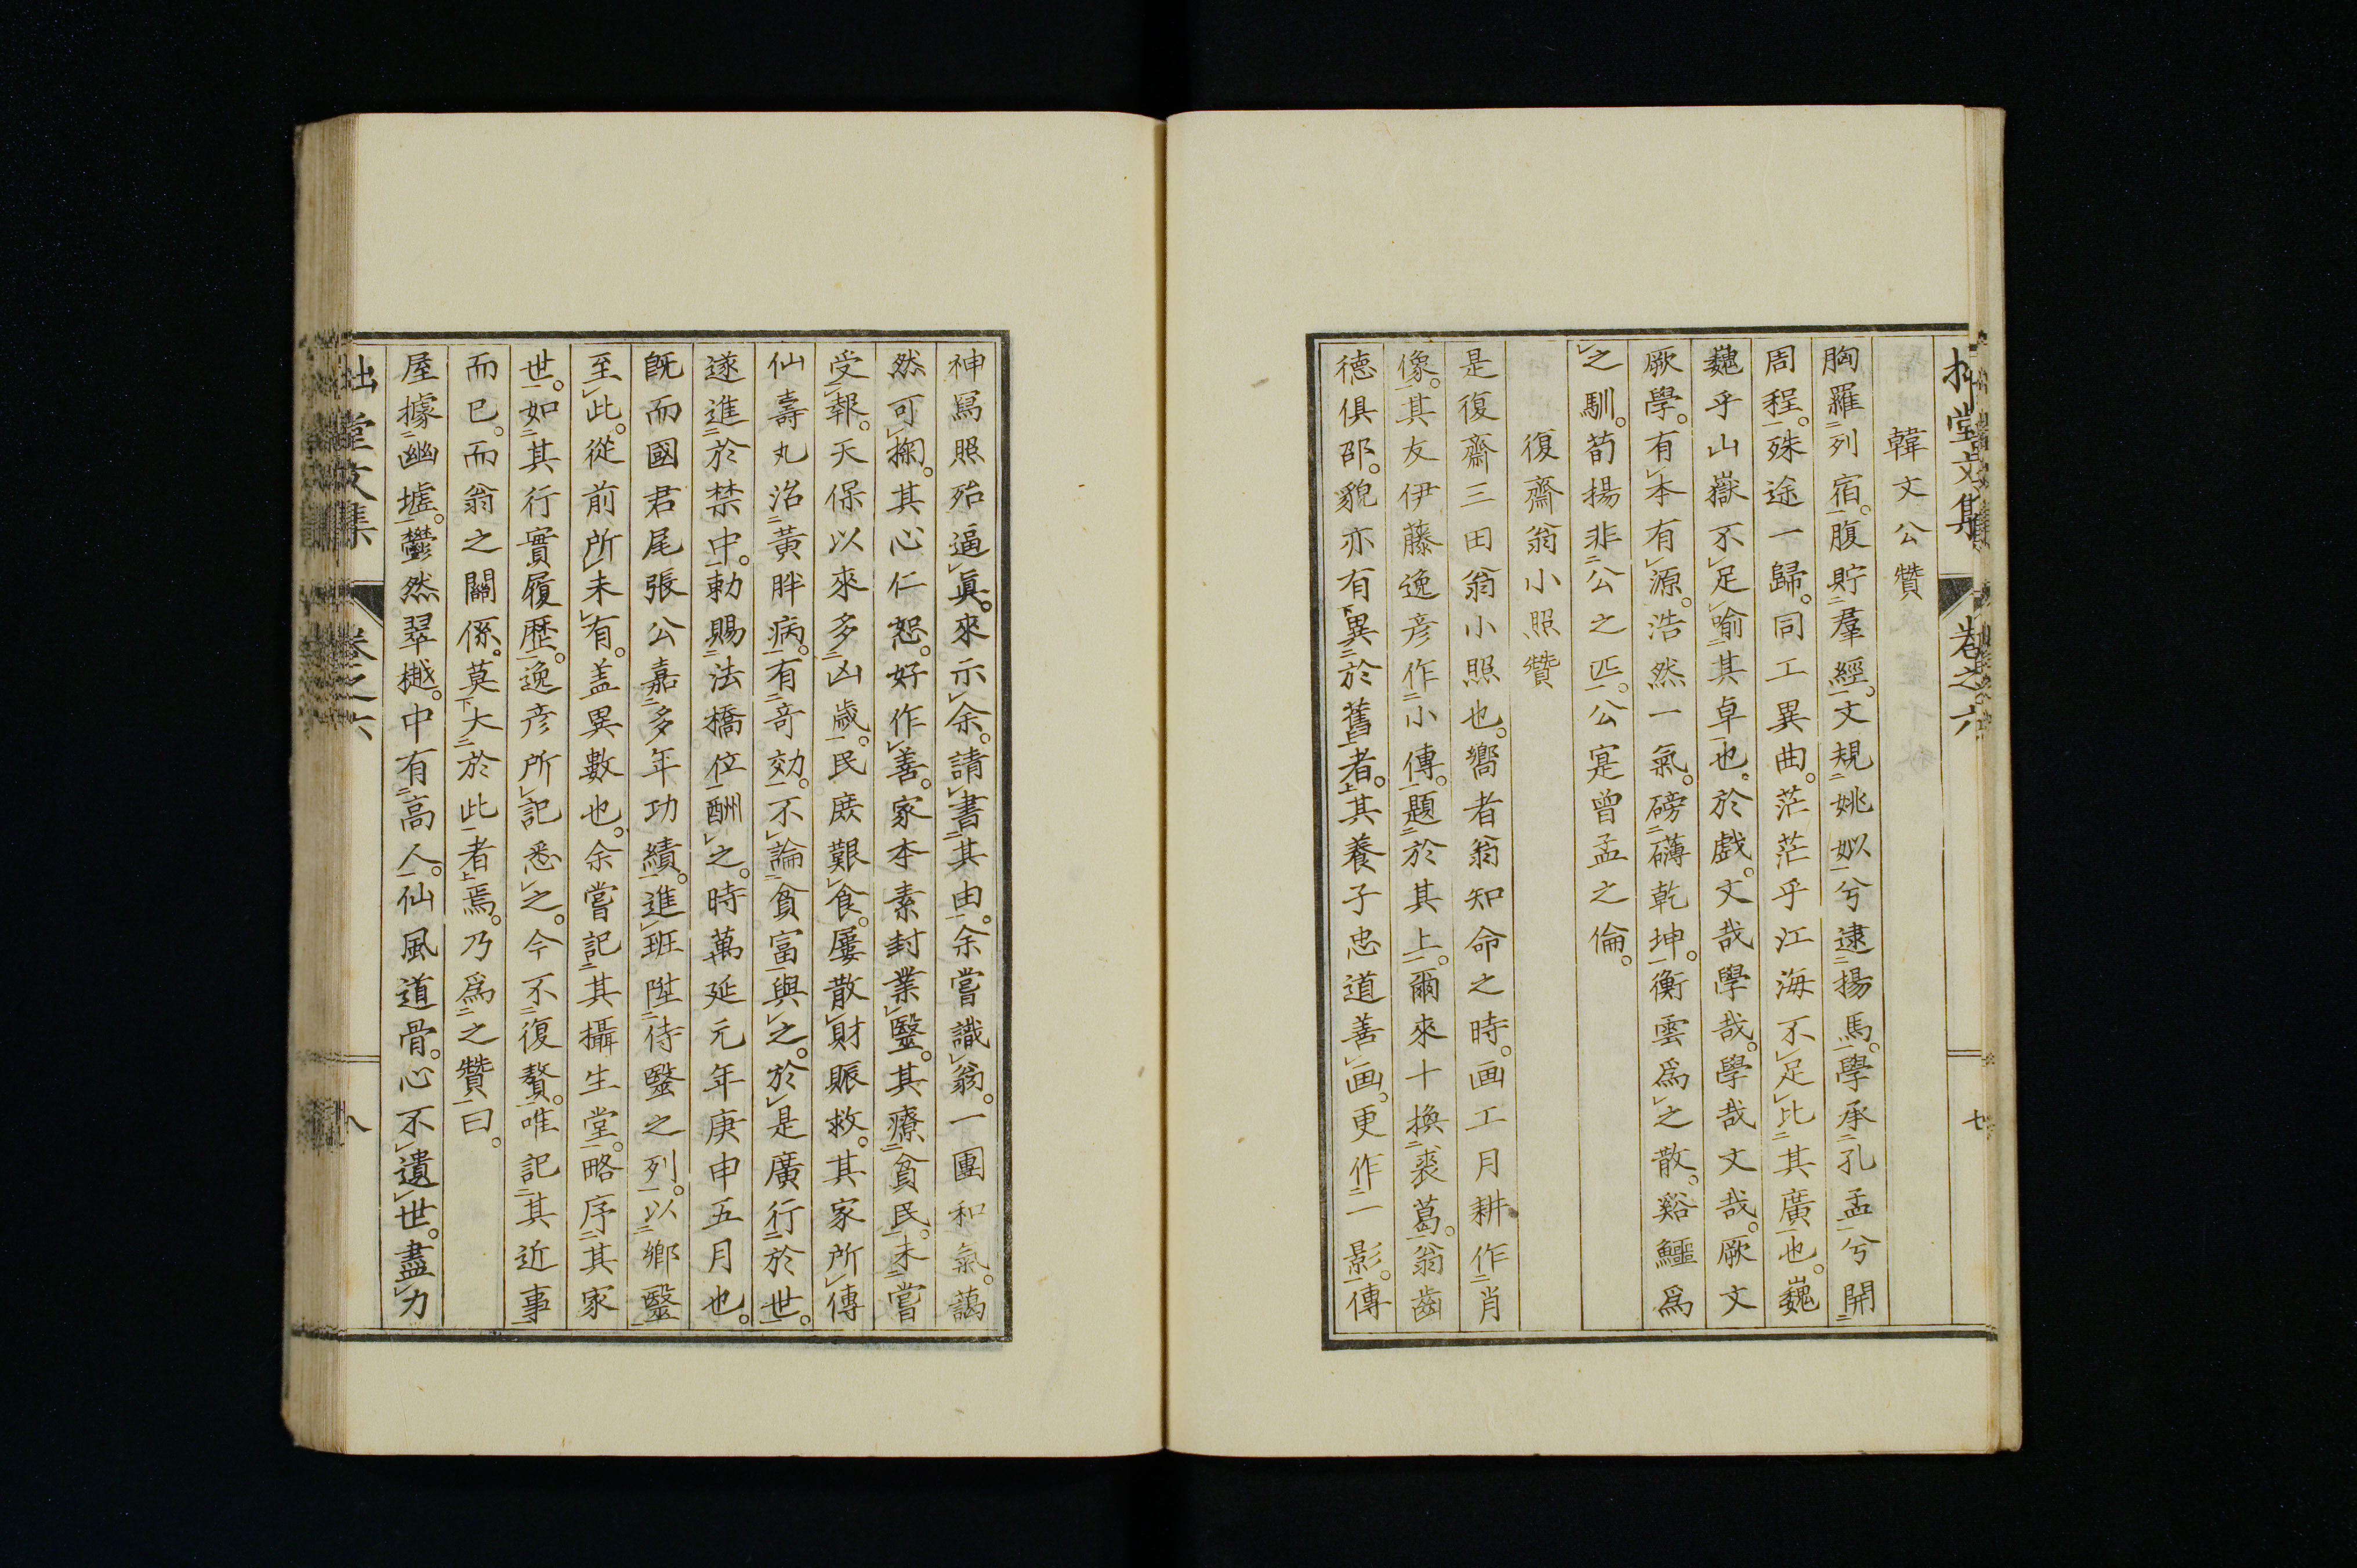 拙堂文集 卷之六 七
韓文公贊
胸羅列宿。腹貯羣經。文規姚姒兮逮揚馬。學承孔孟兮開
周程。殊途一歸。同工異曲。茫茫乎江海不足比其廣也。巍
巍乎山嶽不足喻其卓也。於戲。文哉學哉。學哉文哉。厥文
厥學。有本有源。浩然一氣。磅礴乾坤。衡雲爲之散。谿鱷爲
之馴。荀揚非公之匹。公寔曾孟之倫。
復齋翁小照贊
是復齋三田翁小照也。嚮者翁知命之時。画工月耕作肖
像。其友伊藤逸彦作小傳。題於其上。爾來十換裘葛。翁齒
德俱邵。貌亦有異於舊者。其養子忠道善画。更作一影。傳
神寫照殆逼眞。來示余。請書其由。余嘗識翁。一團和氣。藹
然可掬。其心仁恕。好作善。家本素封業毉。其療貧民。未嘗
受報。天保以來多凶歲。民庻艱食。屢散財賑救。其家所傳
仙壽丸治黃胖病。有竒効。不論貧富與之。於是廣行於世。
遂進於禁中。勅賜法橋位酬之。時萬延元年庚申五月也。
既而國君尾張公嘉多年功績。進班陞侍毉之列。以鄉毉
至此。從前所未有。盖異數也。余嘗記其攝生堂。略序其家
世。如其行實履歴。逸彦所記悉之。今不復贅。唯記其近事
而已。而翁之關係。莫大於此者焉。乃爲之贊曰。
屋據幽墟。鬱然翠樾。中有高人。仙風道骨。心不遺世。盡力
拙堂文集 卷之六 八